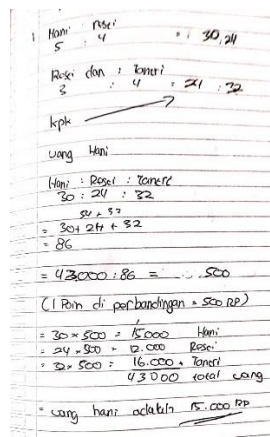 1 Hani : Rosei
5 : 4 = : 30,24
Rosei dan : Taneri
3 : 4 = 24 : 32
kpk
uang Hani
Hani : Rosei : Taneri
30 : 24 : 32
54 + 32
= 30 + 24 + 32
= 86
= 43000 : 86 = 500
(1 Poin di perbandingan = 500 RP)
= 30 x 500 = 15000 Hani
= 24 x 500 = 12.000 Rosei
= 32 x 500 = 16.000 + Taneri
43000 total uang
= uang hani adalah 15.000 RP